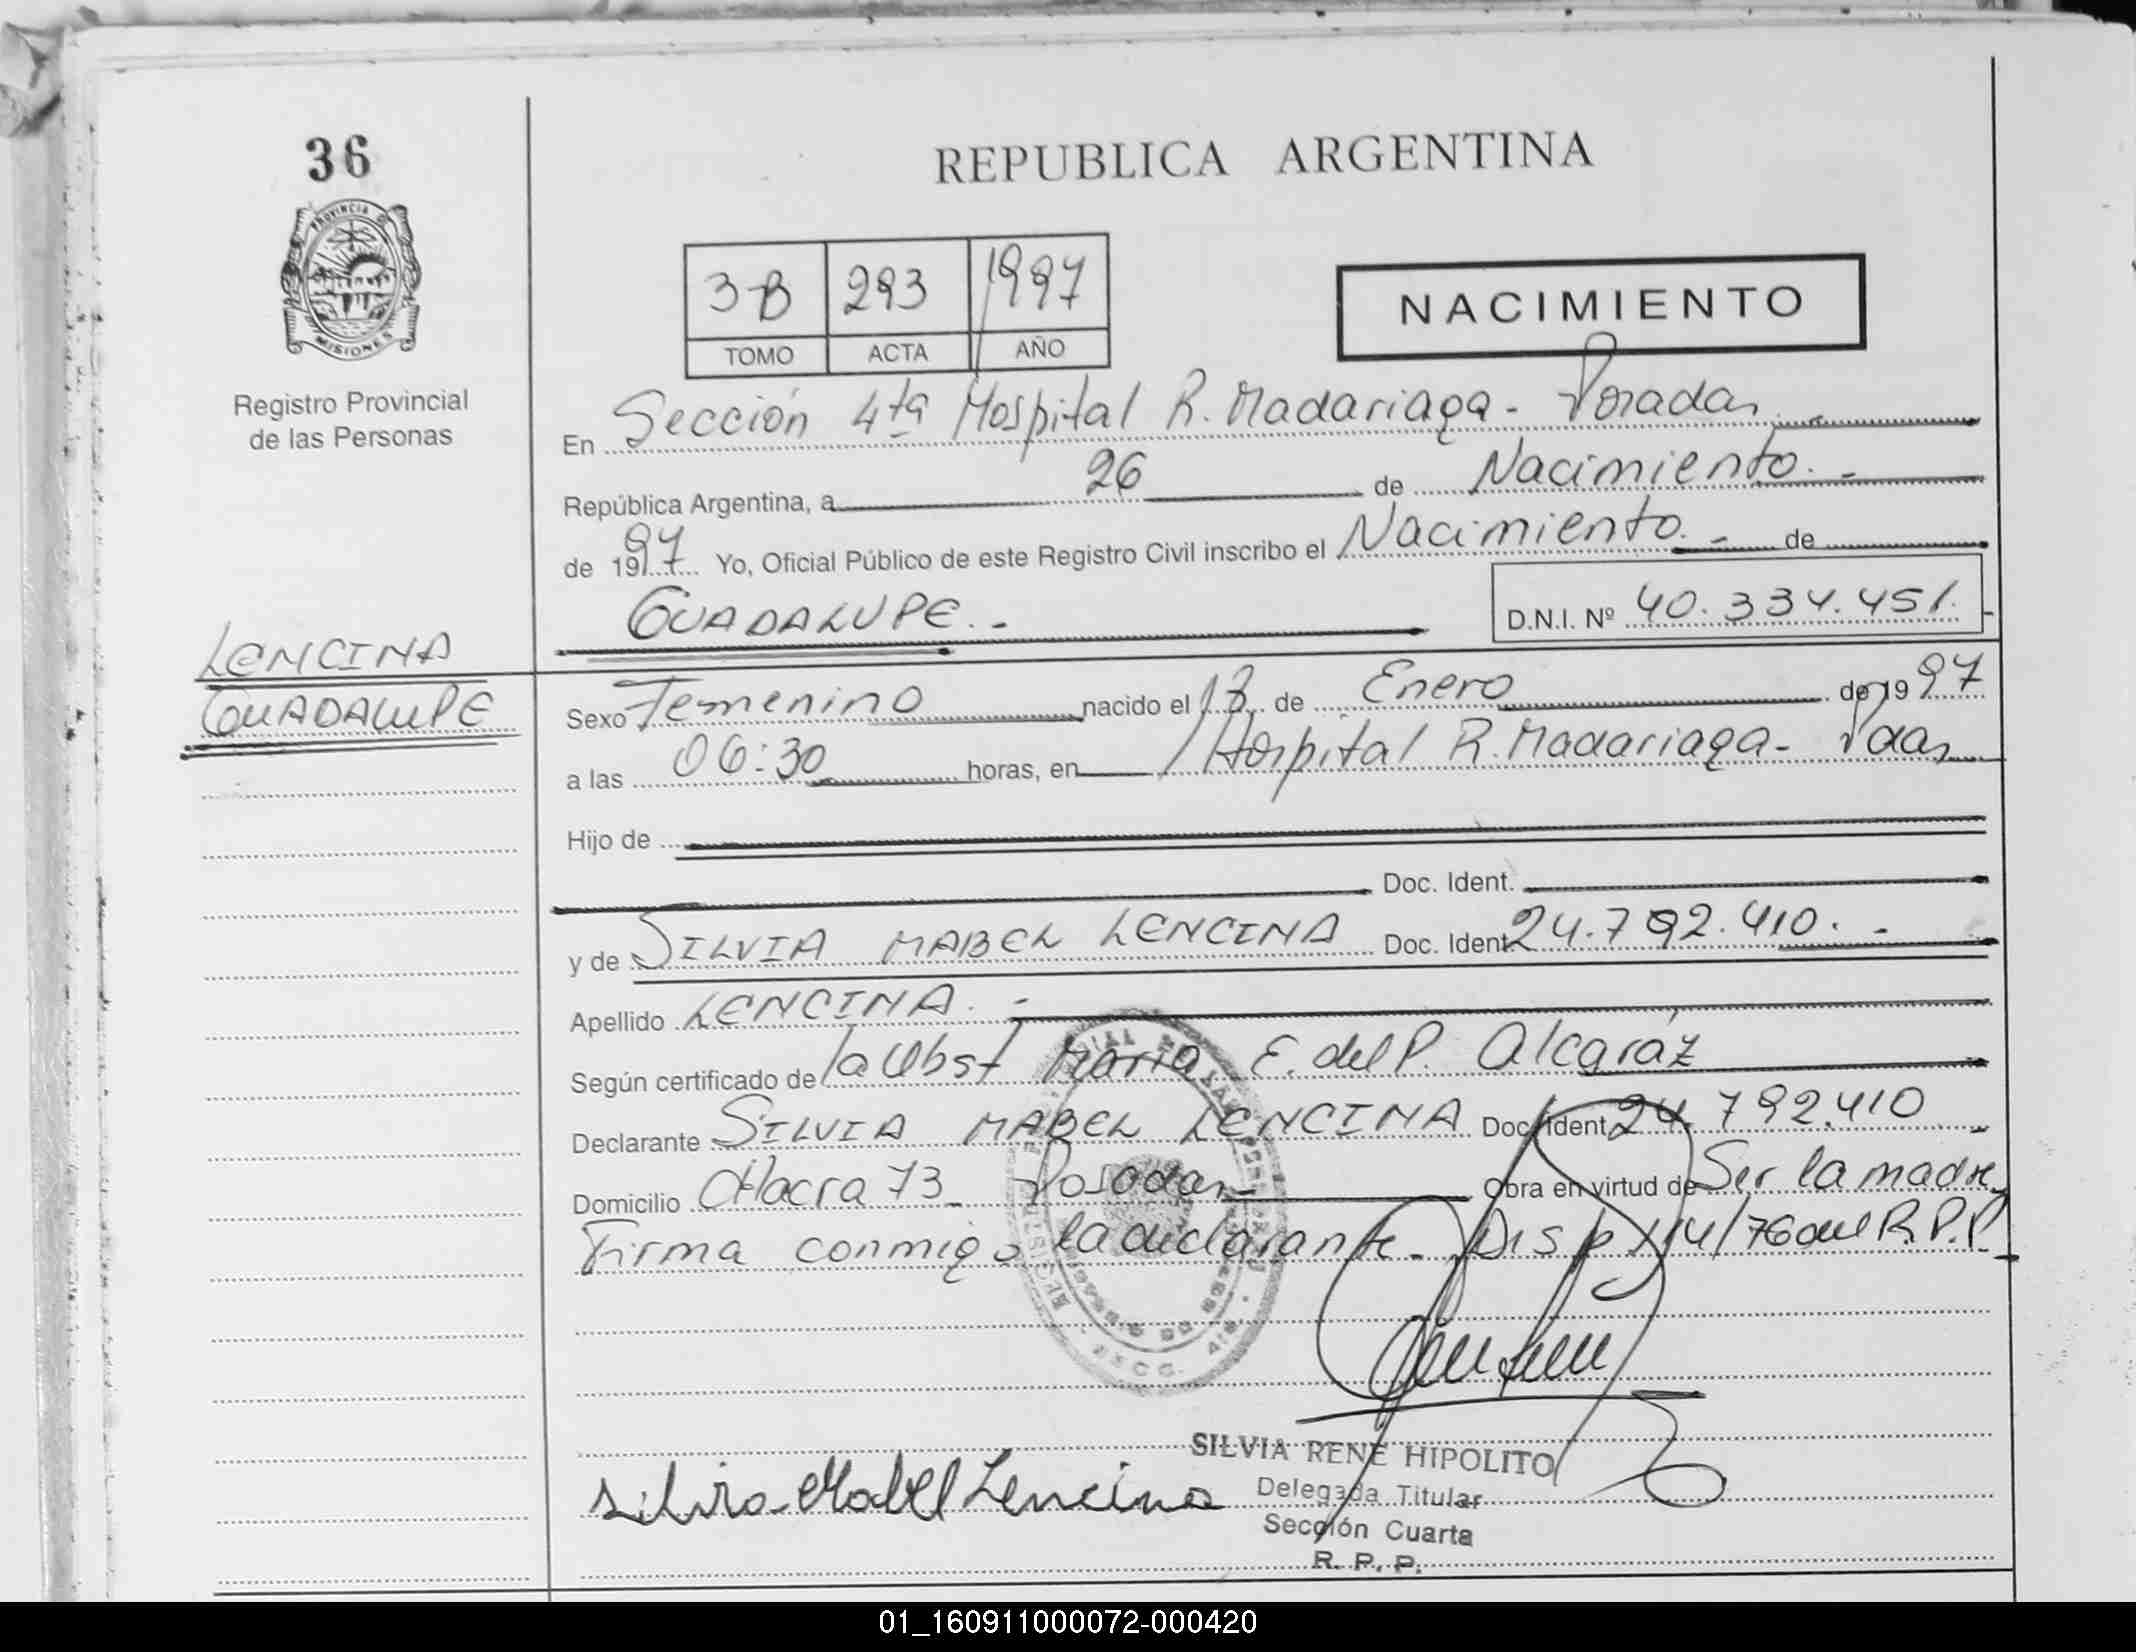 36
PROVINCIA D
MISIONES
Registro Provincial
de las Personas
REPUBLICA ARGENTINA
3-B 293 1997
TOMO ACTA AÑO
NACIMIENTO
En Sección 4ta Hospital R. Madariaga - Posadas
República Argentina, a 26 de Nacimiento. -
de 1997 Yo, Oficial Público de este Registro Civil inscribo el Nacimiento. - de
GUADALUPE. -
D.N.I. Nº 40.334.451.
LENCINA
GUADALUPE
Sexo Femenino nacido el 13 de Enero de 1997
a las 06:30 horas, en Hospital R. Madariaga - Pdas
Hijo de
Doc. Ident.
y de SILVIA MABEL LENCINA Doc. Ident 24.792.410. -
Apellido LENCINA. -
Según certificado de la Obst Maria E. del P. Alcaráz
Declarante SILVIA MABEL LENCINA Doc. Ident 24.792.410
Domicilio Chacra 73 - Posadas Obra en virtud de Ser la madre
Firma conmigo la declarante. Disp 114/76 del R.P.P.
SILVIA RENE HIPOLITO
Silvia Mabel Lencina Delegada Titular
Sección Cuarta
R. P. P.
01_160911000072-000420